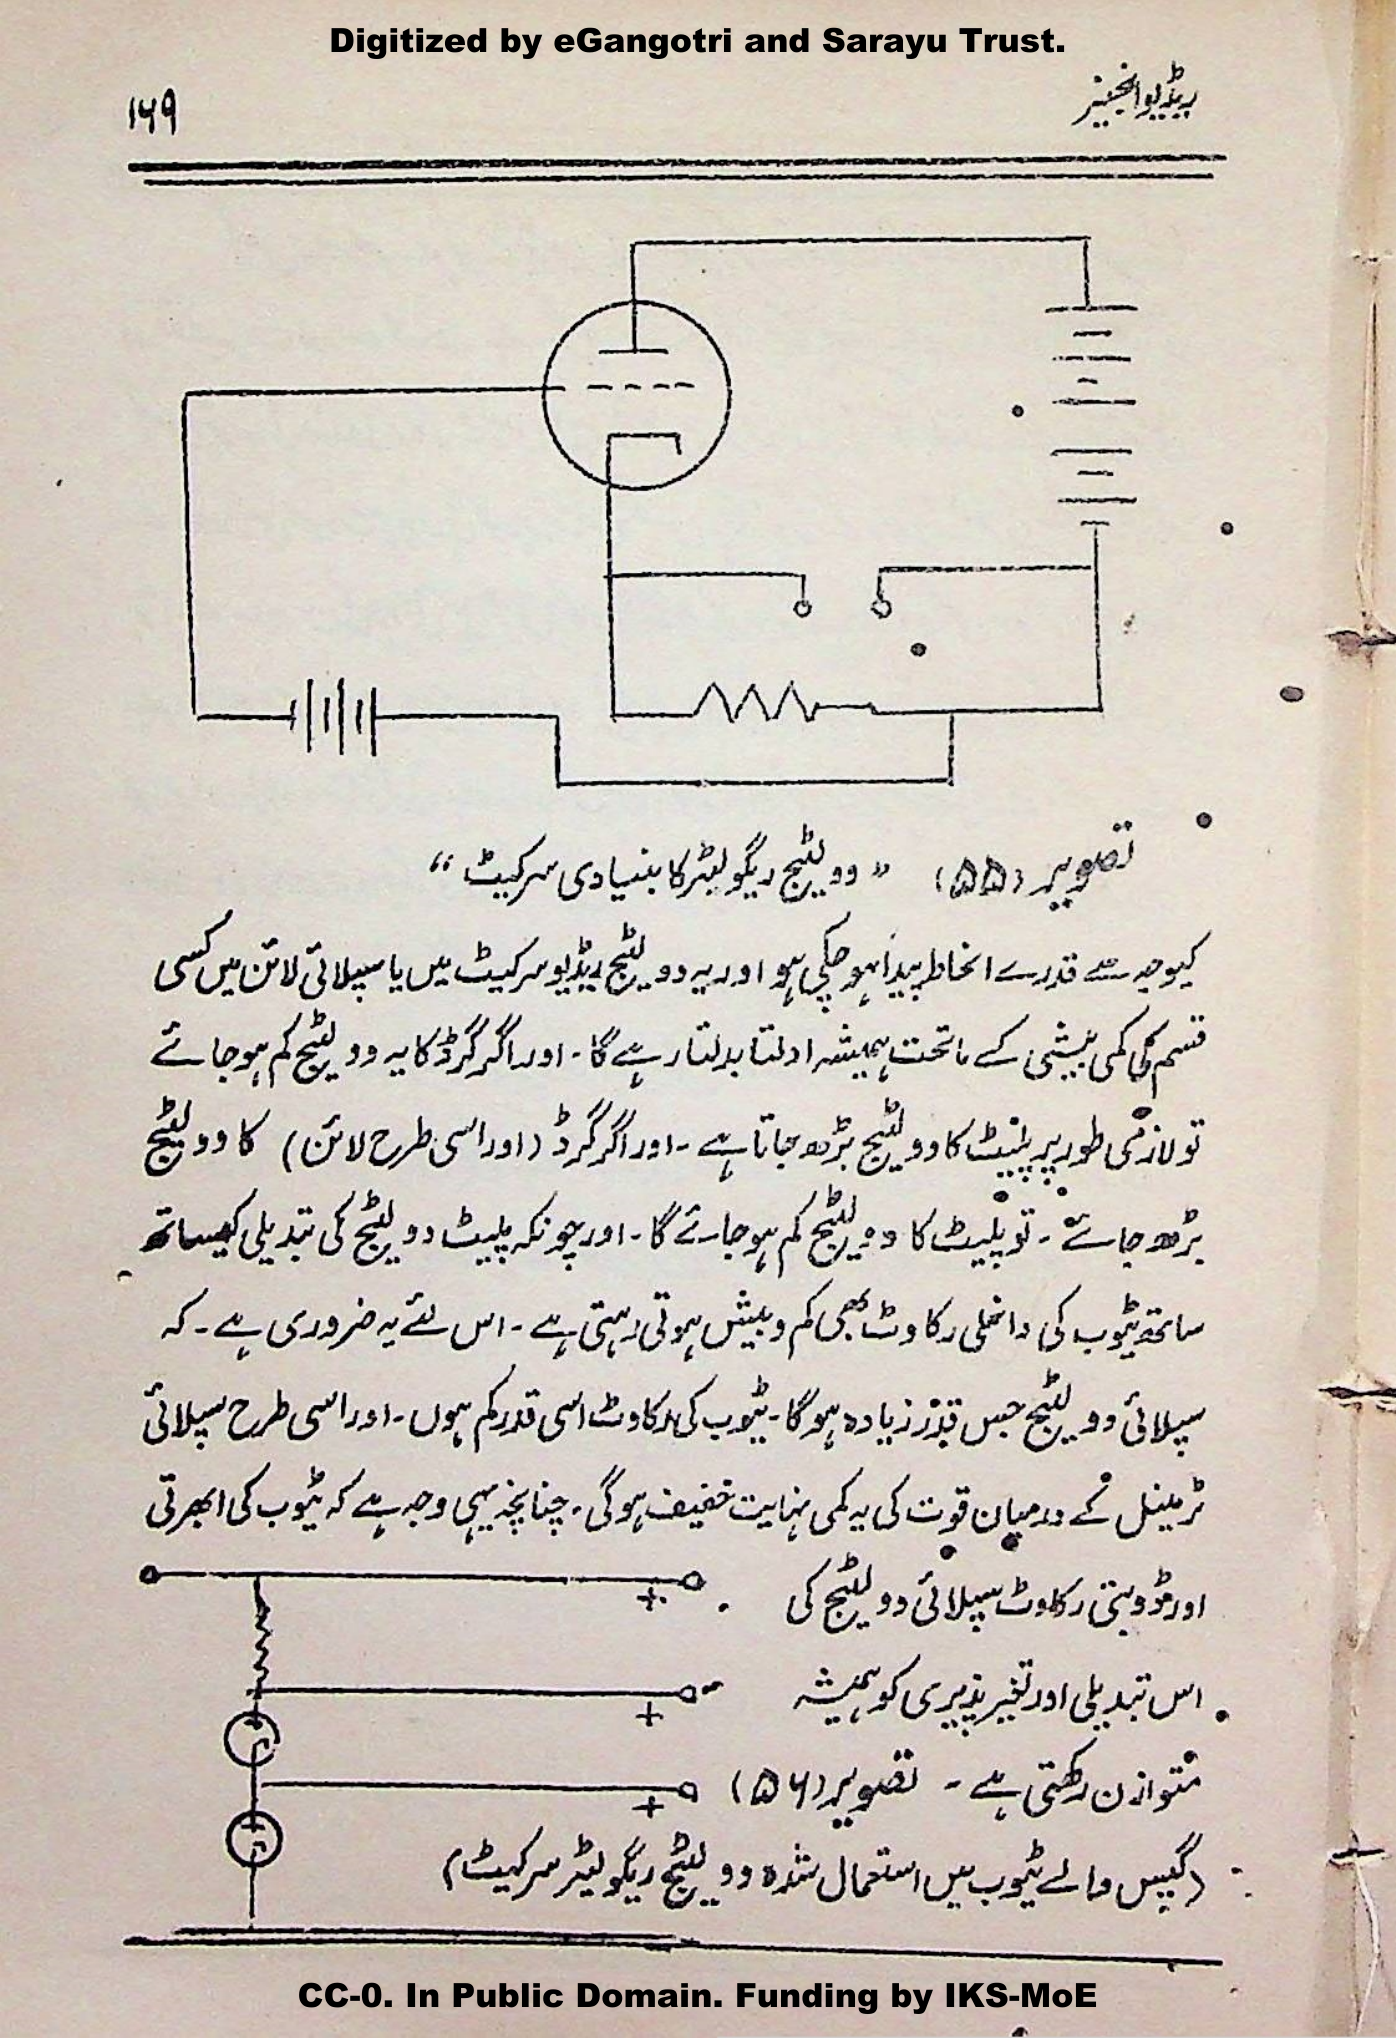 Digitized by eGangotri and Sarayu Trust.
ریڈیو انجینیر
۱۶۹
تصویر (۵۵) ” وولٹیج ریگولیٹر کا بنیادی سرکیٹ “
کیوجہ سے قدرے انحاط پیدا ہو چکی ہو اور یہ وولٹیج ریڈیو سرکیٹ میں یا سپلائی لائن میں کسی
قسم کی کمی بیشی کے ماتحت ہمیشہ ادلتا بدلتا رہے گا۔ اور اگر گرڈ کا یہ وولٹیج کم ہو جائے
تو لازمی طور پر پلیٹ کا وولٹیج بڑھ جاتا ہے ۔ اور اگر گرڈ (اور اسی طرح لائن) کا وولٹیج
بڑھ جائے ۔ تو پلیٹ کا وولٹیج کم ہو جائے گا ۔ اور چونکہ پلیٹ وولٹیج کی تبدیلی کیساتھ
ساتھ ٹیوب کی داخلی رکاوٹ بھی کم و بیش ہوتی رہتی ہے ۔ اس لئے یہ ضروری ہے ۔ کہ
سپلائی وولٹیج جس قدر زیادہ ہو گا ۔ ٹیوب کی رکاوٹ اسی قدر کم ہوں ۔ اور اسی طرح سپلائی
ٹرمینل کے درمیان قوت کی یہ کمی نہایت خفیف ہو گی ۔ چنانچہ یہی وجہ ہے کہ ٹیوب کی ابھرتی
اور ڈوبتی رکاوٹ سپلائی وولٹیج کی
+
اس تبدیلی اور تغیر پذیری کو ہمیشہ
+
متوازن رکھتی ہے ۔ تصویر (۵۶)
+
(گیس والے ٹیوب میں استعمال شدہ وولٹیج ریگولیٹر سرکیٹ)
CC-0. In Public Domain. Funding by IKS-MoE